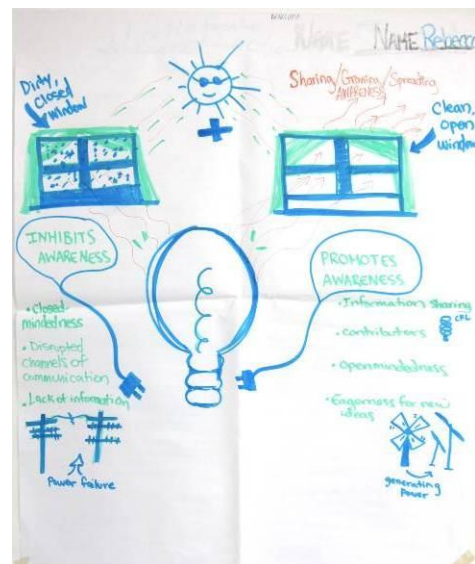 NAME Rebecca
Sharing/Growing/Spreading
AWARENESS
Dirty,
Closed
window
Clean,
open
window
INHIBITS
AWARENESS
PROMOTES
AWARENESS
• Closed
mindedness
• Disrupted
channels of
communication
• Lack of information
Power failure
• Information sharing
CFL
• Contributors
• Openmindedness
• Eagerness for new
ideas
generating
power